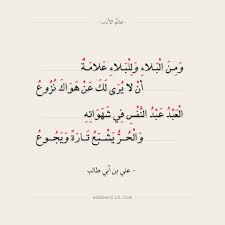 عَالَمُ الأَدَب
وَمِنَ الْبَلَاءِ وَلِلْبَلَاءِ عَلَامَةٌ
أَنْ لَا يُرَى لَكَ عَنْ هَوَاكَ نُزُوعُ
الْعَبْدُ عَبْدُ النَّفْسِ فِي شَهَوَاتِهِ
وَالْحُرُّ يَشْبَعُ تَارَةً وَيَجُوعُ
- علي بن أبي طالب
adabworld.com